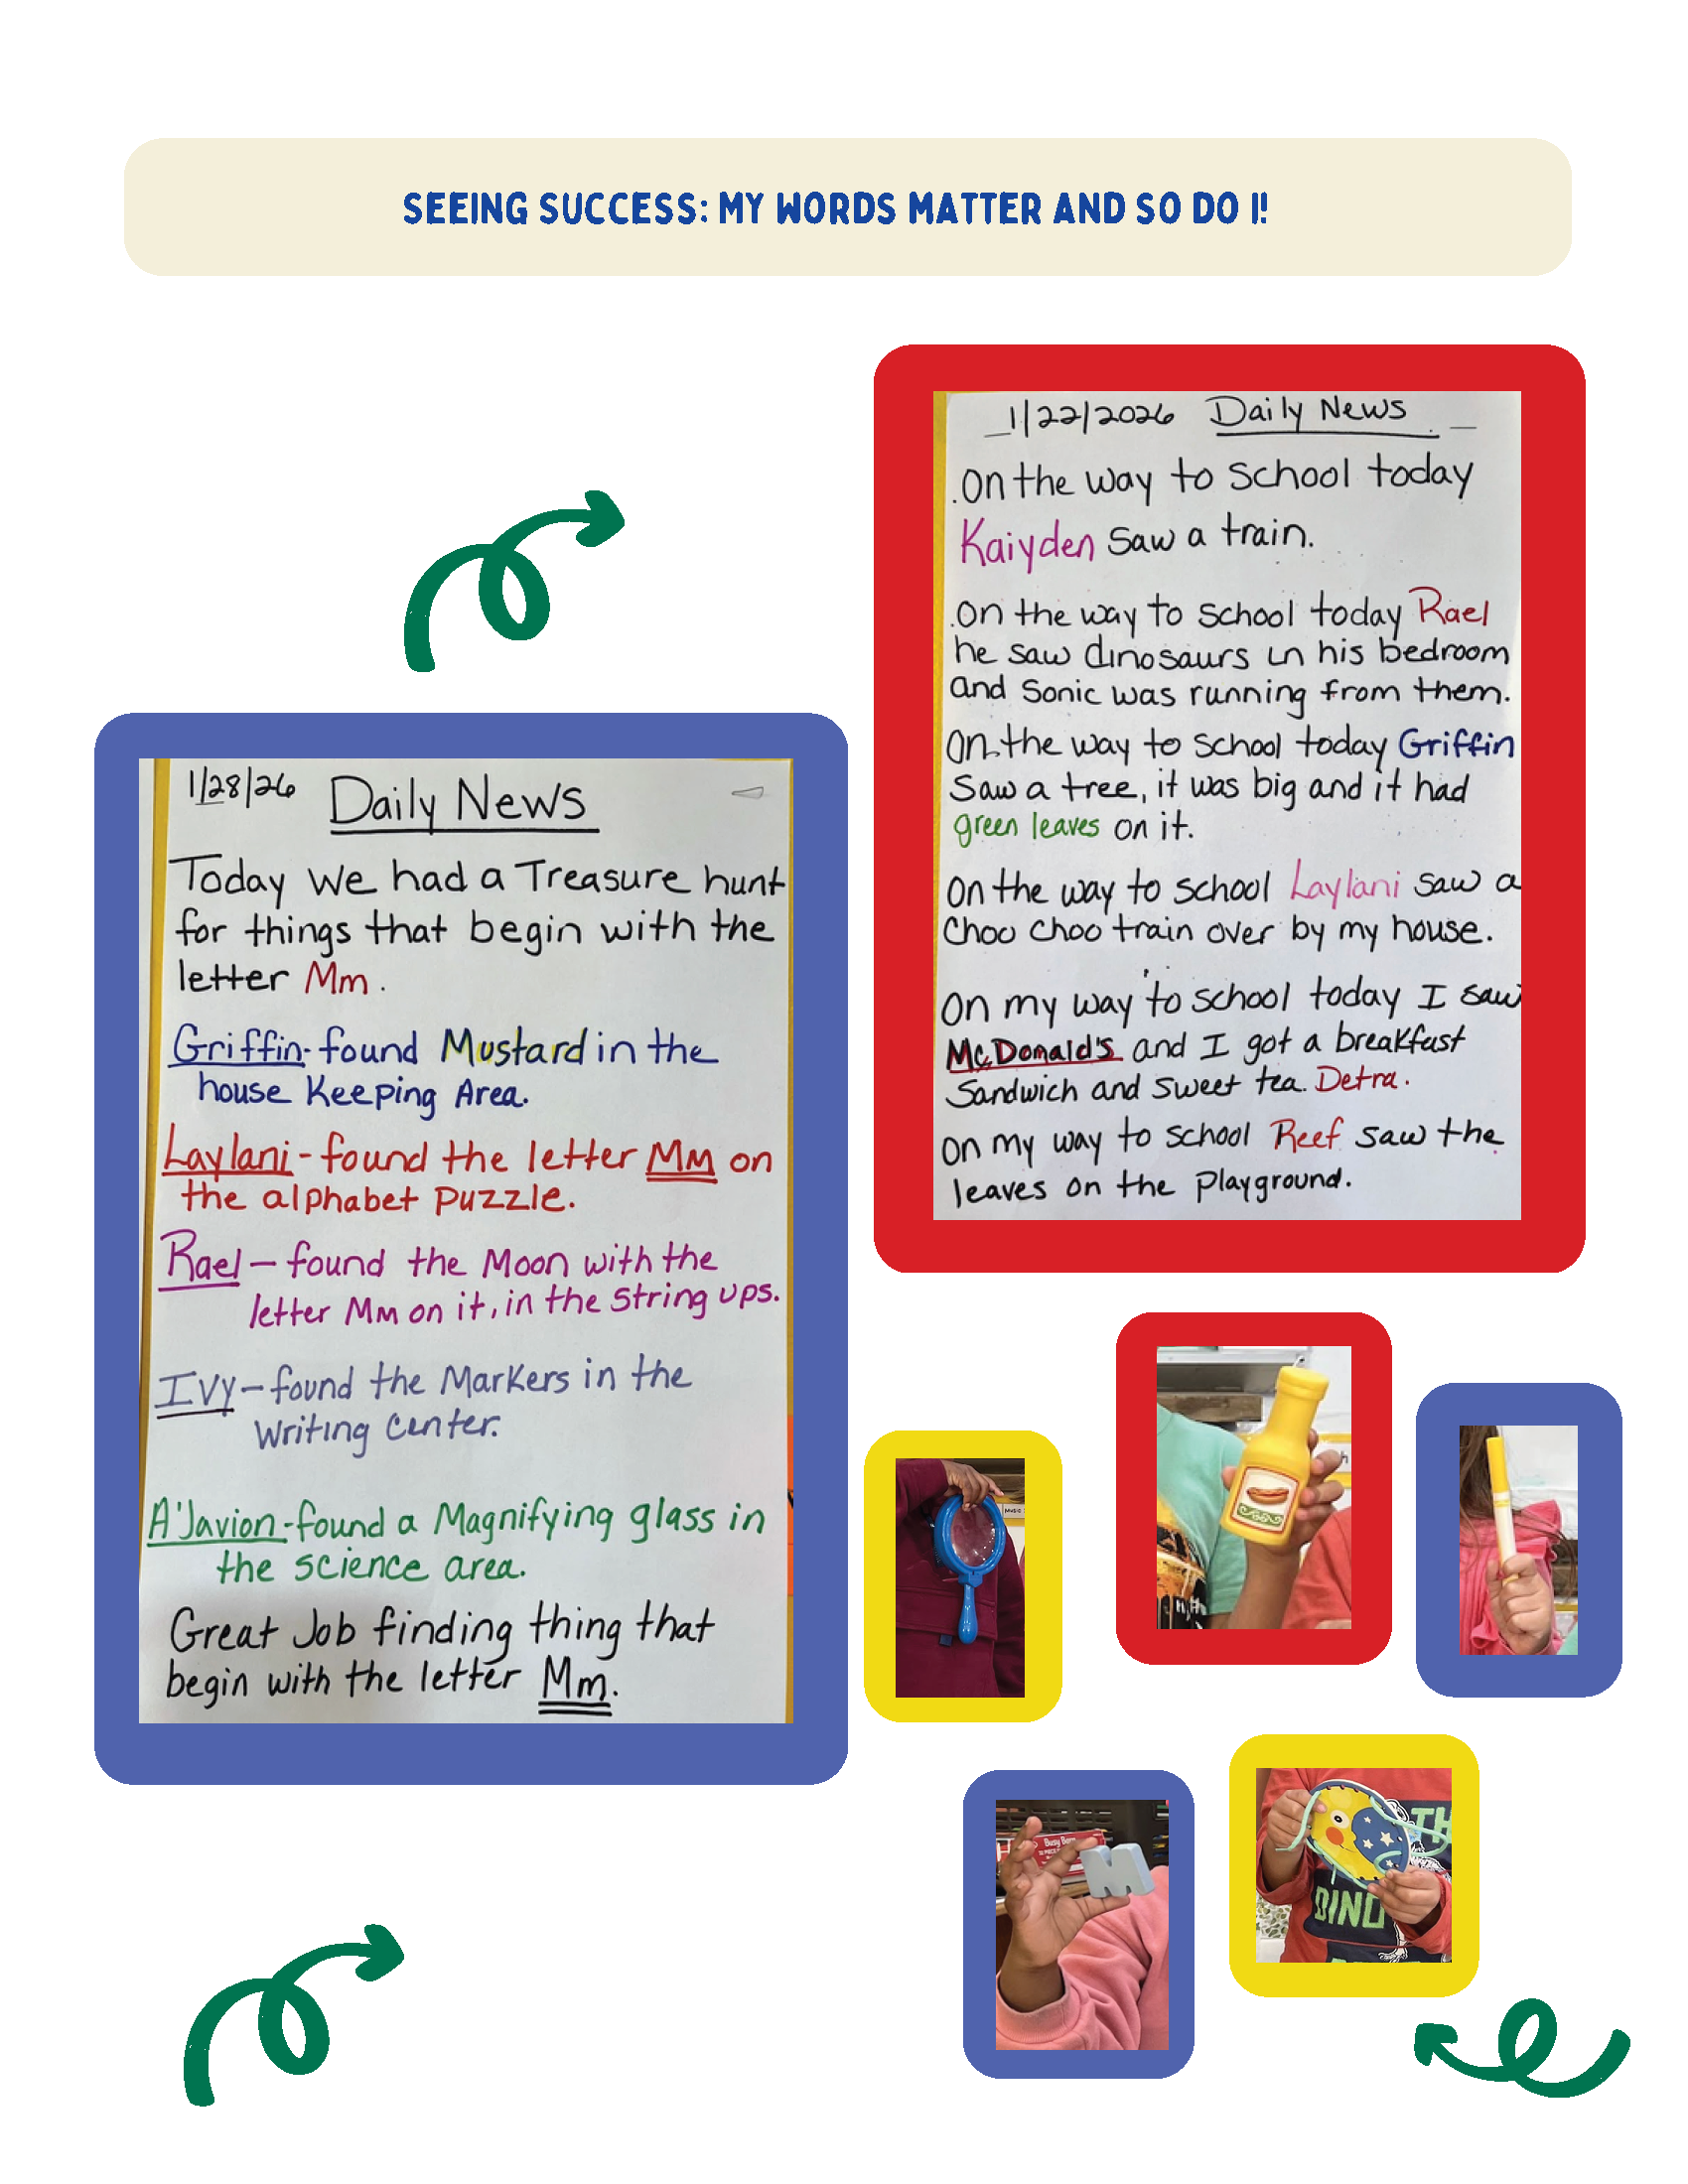 SEEING SUCCESS: MY WORDS MATTER AND SO DO I!
1/22/2026 Daily News
On the way to school today
Kaiyden saw a train.
On the way to school today Rael
he saw dinosaurs in his bedroom
and Sonic was running from them.
On the way to school today Griffin
Saw a tree, it was big and it had
green leaves on it.
On the way to school Laylani saw a
Choo Choo train over by my house.
On my way to school today I saw
McDonald's and I got a breakfast
Sandwich and sweet tea. Detra.
On my way to school Reef saw the
leaves on the playground.
1/28/26 Daily News
Today we had a Treasure hunt
for things that begin with the
letter Mm.
Griffin- found Mustard in the
house Keeping Area.
Laylani- found the letter Mm on
the alphabet puzzle.
Rael- found the Moon with the
letter Mm on it, in the string ups.
Ivy- found the Markers in the
Writing Center.
A'Javion- found a Magnifying glass in
the science area.
Great Job finding thing that
begin with the letter Mm.
MUSIC
Busy Barn
M
TH
DINO